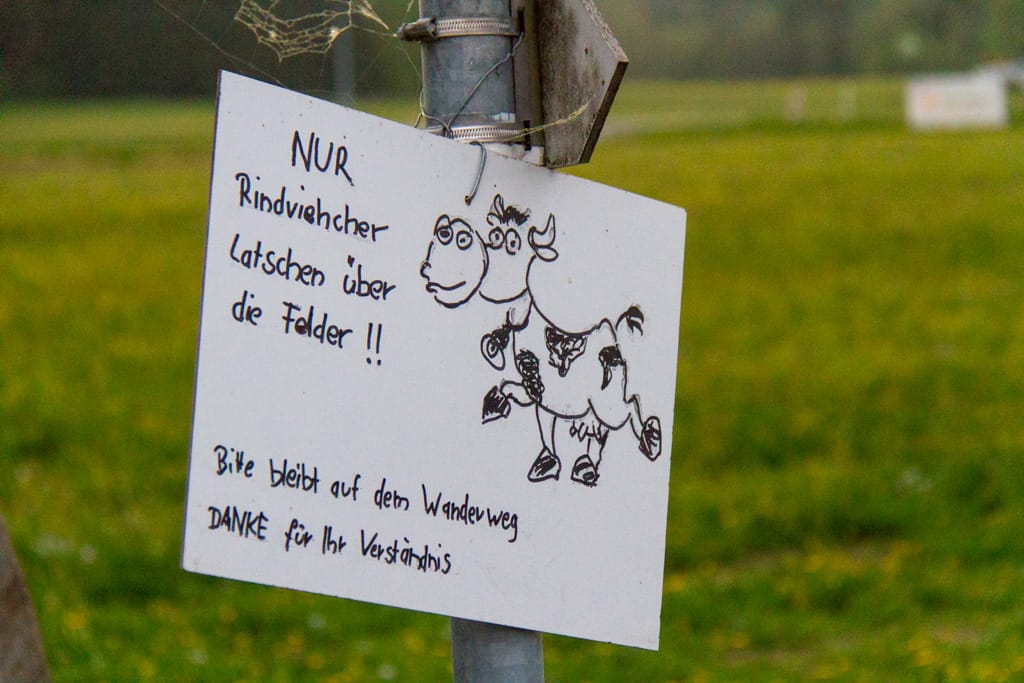 NUR
Rindviehcher
Latschen über
die Felder !!
Bitte bleibt auf dem Wanderweg
DANKE für Ihr Verständnis